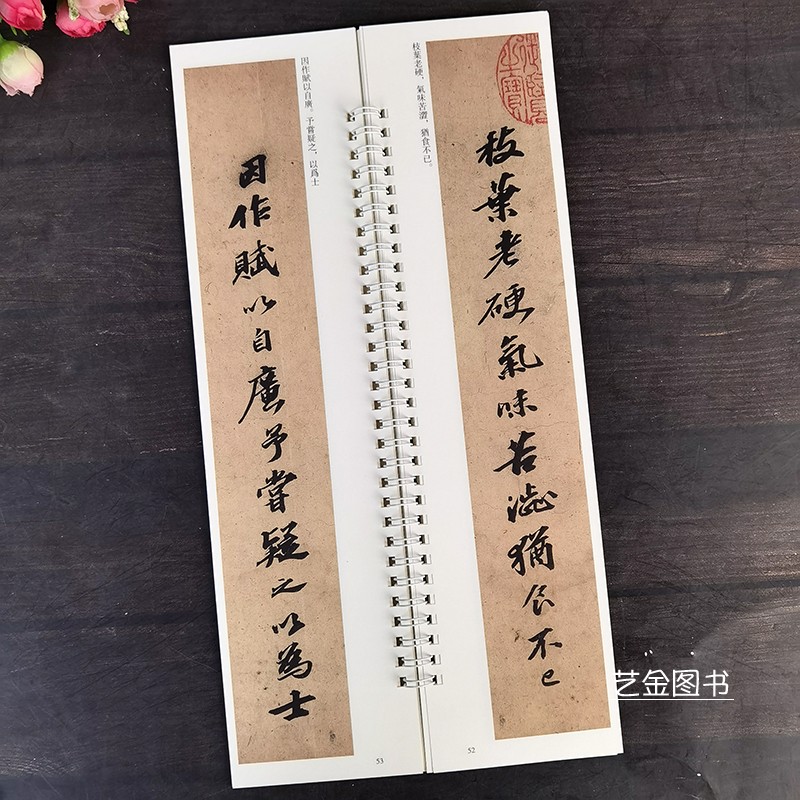 枝葉老硬氣味苦澁猶食不已
枝葉老硬，氣味苦澀，猶食不已。
因作賦以自廣予嘗疑之以為士
因作賦以自廣。予嘗疑之，以爲士
52
53
艺金图书